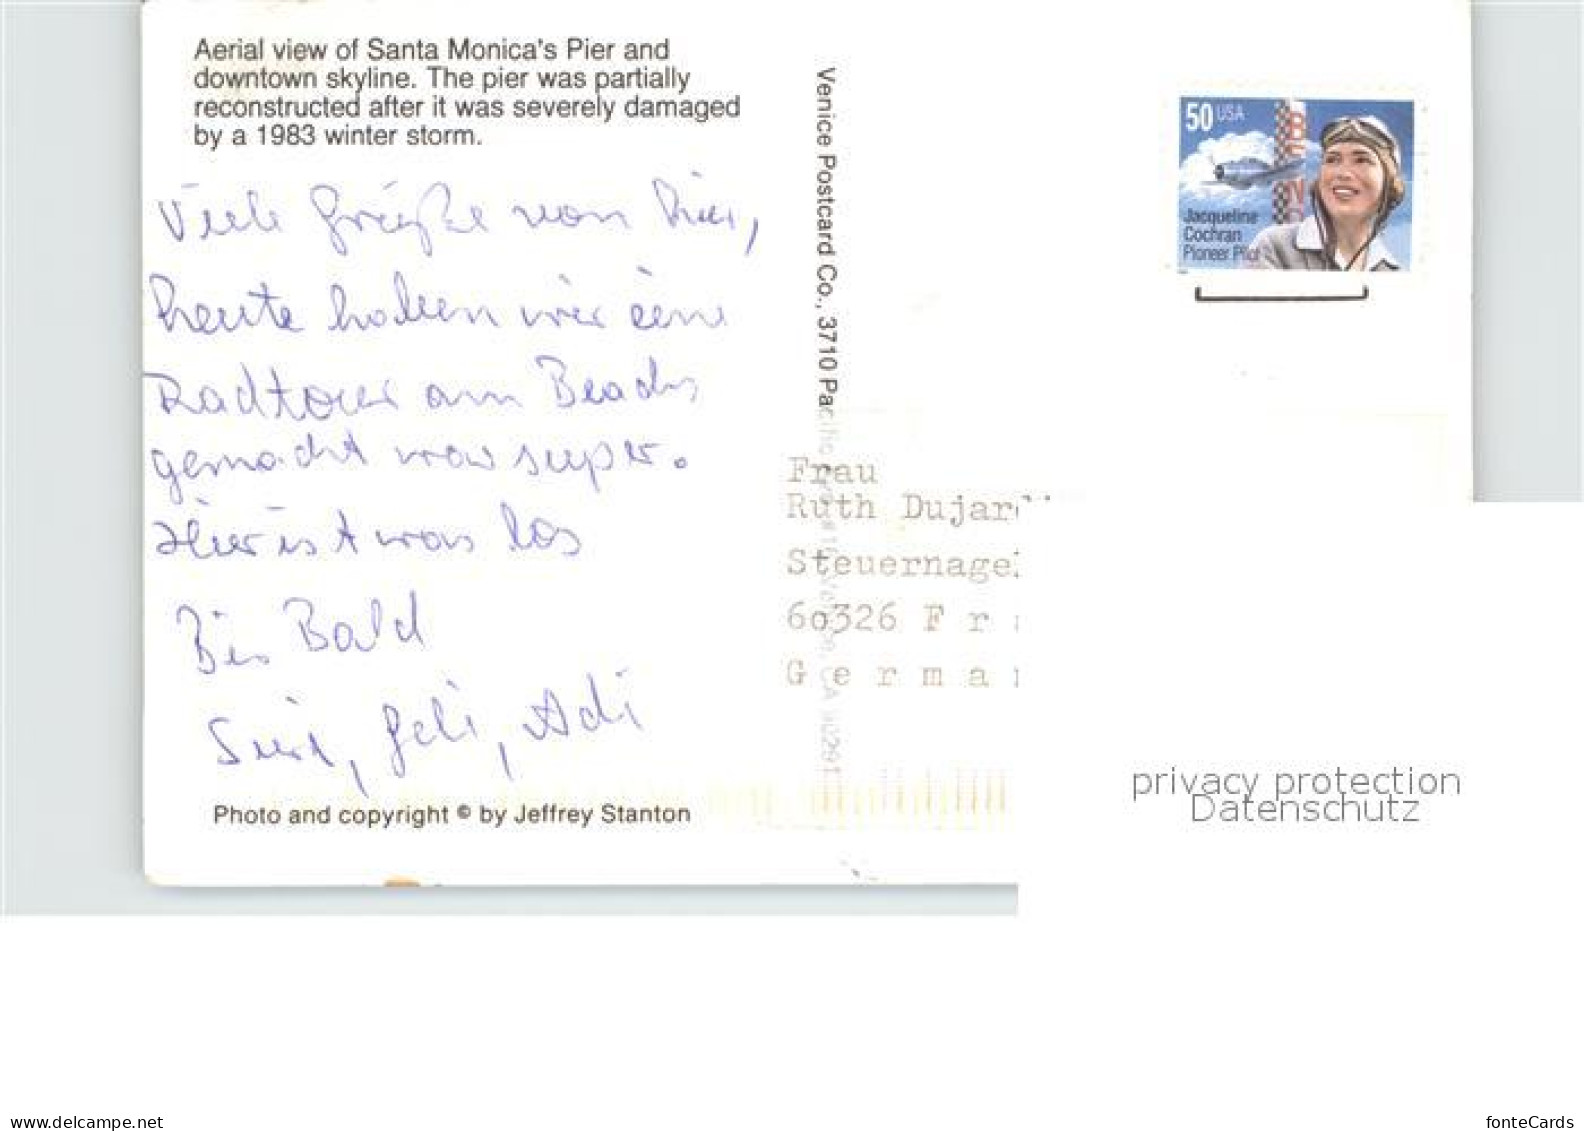 Aerial view of Santa Monica's Pier and
downtown skyline. The pier was partially
reconstructed after it was severely damaged
by a 1983 winter storm.
Viele Grüße von hier,
heute haben wir eine
Radtour am Beach
gemacht war super.
Hier ist was los
Bis Bald
Geli, Adi
Photo and copyright © by Jeffrey Stanton
Venice Postcard Co., 3710 Pacific
50 USA
Jacqueline
Cochran
Pioneer Pilot
Frau
Ruth Dujar
Steuernage
60326 F r
G e r m a
privacy protection
Datenschutz
www.delcampe.net
fonteCards